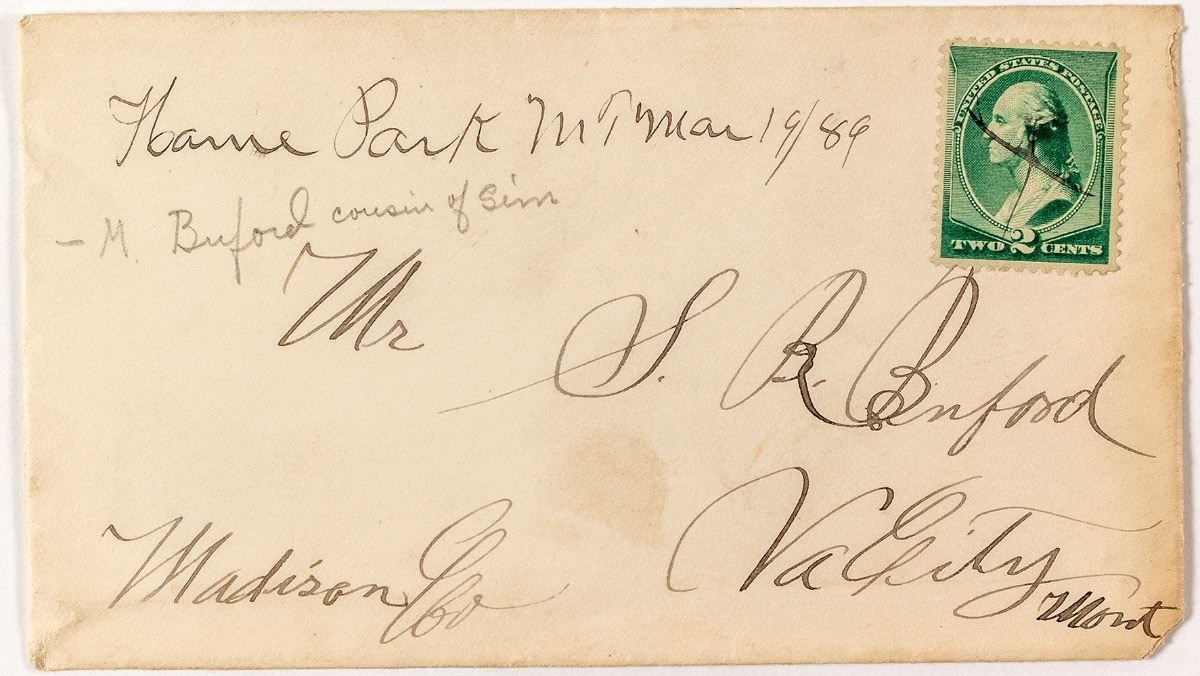 Home Park M T Mar 19/89
UNITED STATES POSTAGE
TWO 2 CENTS
– M. Buford cousin of Sim
Mr
S. R. Buford
Va City
Madison Co
Mont